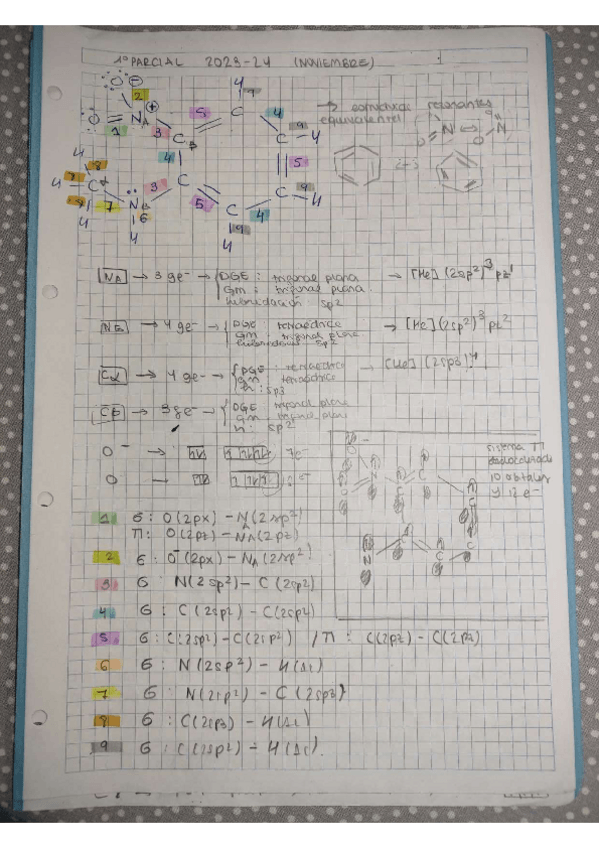 1º PARCIAL 2023-24 (NOVIEMBRE)
→ estructuras resonantes
equivalentes
NA → 3 ge- → DGE: trigonal plana → [He] (2sp²)³ pz¹
GM: trigonal plana
hibridación sp2
NB → 4 ge- → DGE: tetraédrica → [He] (2sp²)³ pz²
GM: trigonal plana
hibridación sp2
Cα → 4 ge- → DGE: tetraédrica → [He] (2sp3)⁴
GM tetraédrica
h: sp3
Cβ → 3 ge- → DGE: trigonal plana
GM: trigonal plana
h: sp2
O⁻ → 7e-
O → 6e-
sistema π
deslocalizado
10 orbitales
y 12 e-
1 σ: O(2px) - NA(2sp²)
π: O(2pz) - NA(2pz)
2 σ: O⁻(2px) - NA(2sp²)
3 σ N(2sp²) - C(2sp2)
4 σ: C(2sp²) - C(2sp2)
5 σ: C(2sp²) - C(2sp²) / π: C(2pz) - C(2pz)
6 σ: N(2sp²) - H(1s)
7 σ: N(2sp²) - C(2sp3)
8 σ: C(2sp3) - H(1s)
9 σ: C(2sp²) - H(1s).